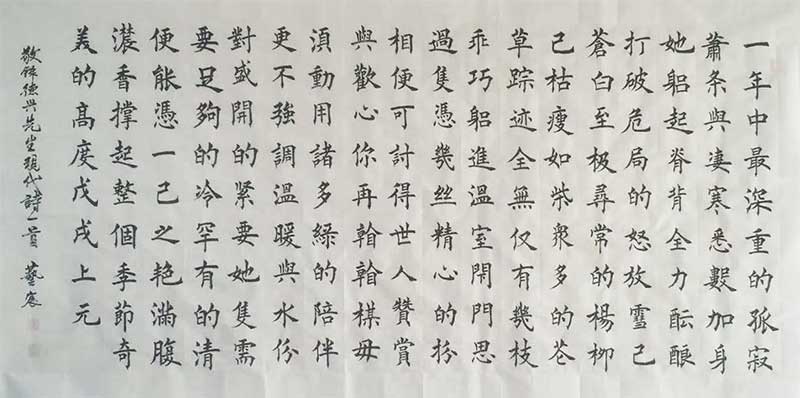 一年中最深重的孤寂
蕭条與凄寒悉數加身
她躬起脊背全力酝酿
打破危局的怒放雪已
蒼白至极尋常的楊柳
已枯瘦如柴衆多的花
草踪迹全無仅有幾枝
乖巧躲進温室閉門思
過隻憑幾丝精心的扮
相便可討得世人贊賞
與歡心你再翰翰棋毋
須動用諸多綠的陪伴
更不強調温暖與水份
對盛開的緊要她隻需
要足夠的冷罕有的清
便能憑一己之艳滿腹
濃香撑起整個季節奇
美的高度戊戌上元
敬録德興先生現代詩一首 藝